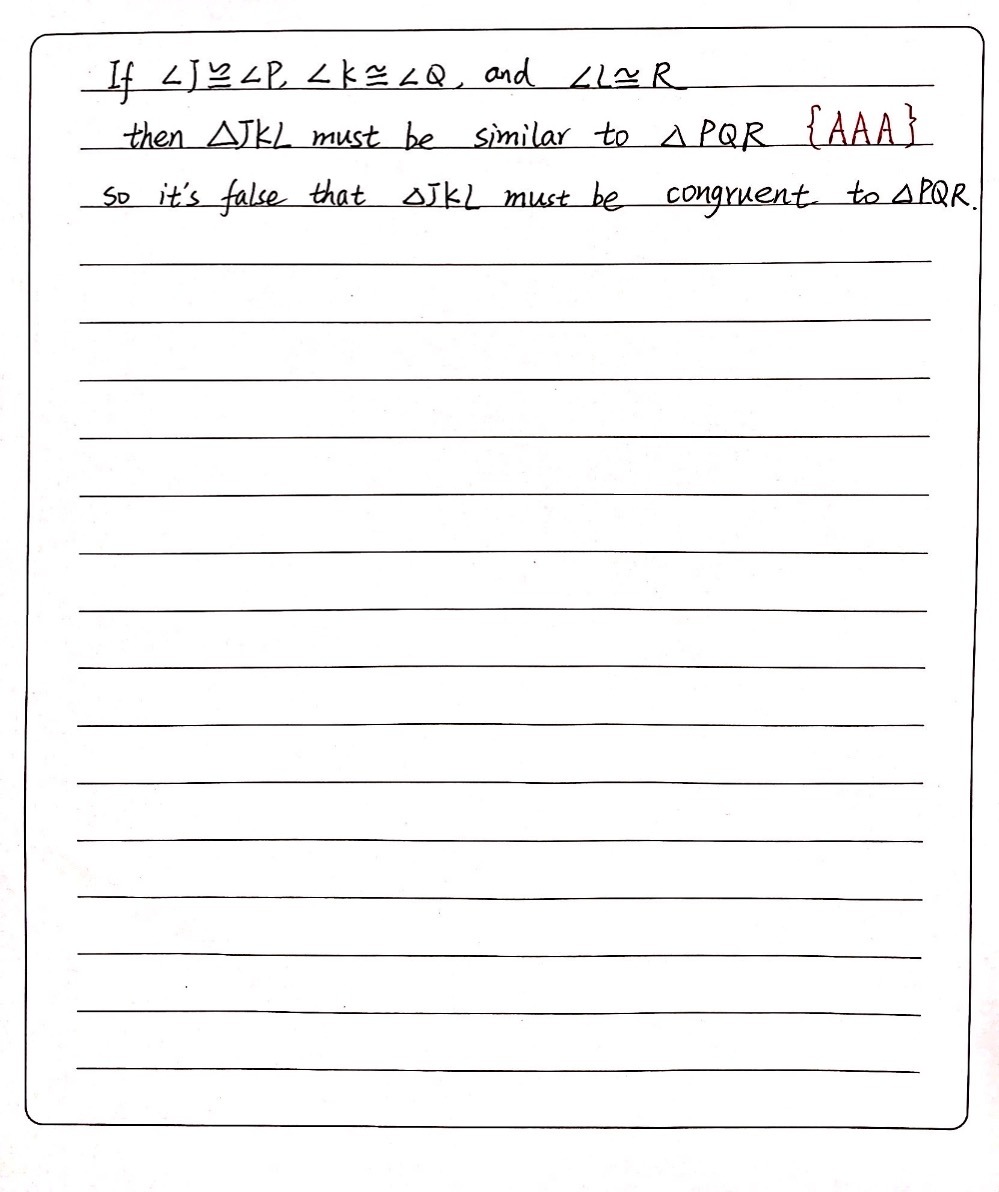 If ∠J≅∠P, ∠k≅∠Q, and ∠L≅R
then △JKL must be similar to △PQR {AAA}
so it's false that △JKL must be congruent to △PQR.